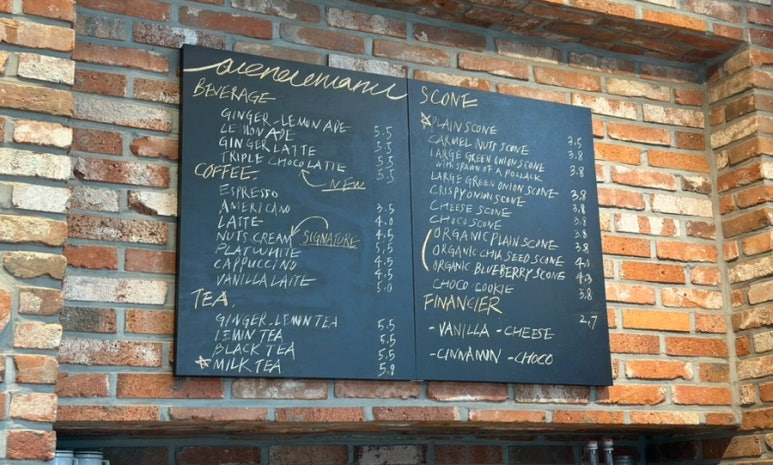 BEVERAGE
GINGER-LEMON ADE
LEMON ADE 5.5
GINGER LATTE 5.5
TRIPLE CHOCOLATTE 5.5
5.5
NEW
COFFEE.
ESPRESSO
AMERICANO 3.5
LATTE 4.0
NUTS CREAM SIGNATURE 4.5
FLAT WHITE 5.5
CAPPUCCINO 4.5
VANILLA LATTE 4.5
5.0
TEA.
GINGER-LEMON TEA
LEMON TEA 5.5
BLACK TEA 5.5
MILK TEA 5.5
5.9
SCONE
PLAIN SCONE
CARMEL NUTS SCONE 3.5
LARGE GREEN ONION SCONE 3.8
WITH SPAWN OF A POLLACK 3.8
LARGE GREEN ONION SCONE
CRISPY ONION SCONE 3.8
CHEESE SCONE 3.8
CHOCO SCONE 3.8
ORGANIC PLAIN SCONE 3.8
ORGANIC CHIA SEED SCONE 3.8
ORGANIC BLUEBERRY SCONE 4.0
CHOCO COOKIE 4.3
3.8
FINANCIER
2,7
-VANILLA -CHEESE
-CINNAMIN -CHOCO